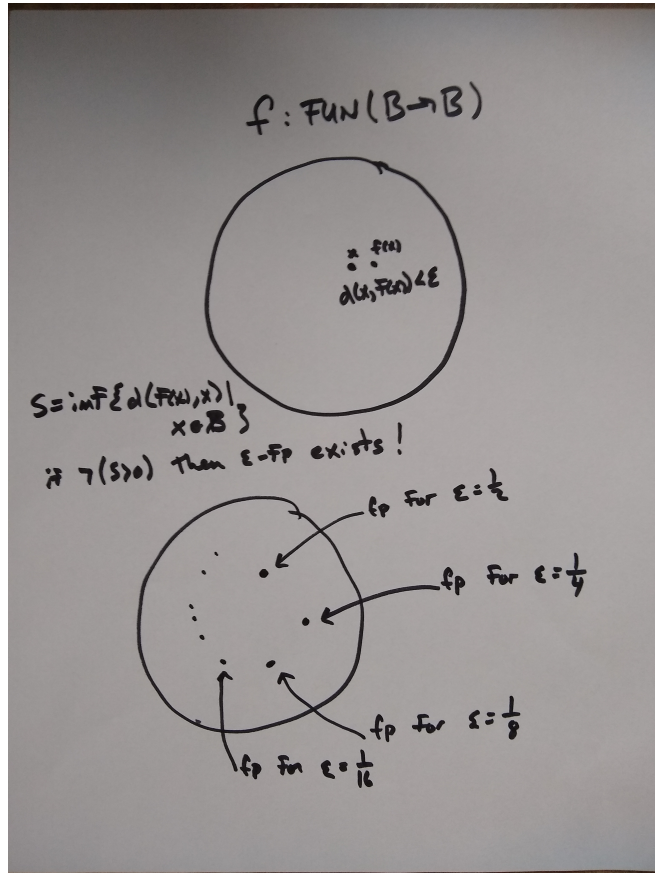 f : FUN(B→B)
x f(x)
d(x, F(x)) < ε
S = inf { d(F(x), x) |
x ∈ B }
if ¬(S>0) then ε-Fp exists !
fp For ε = 1/2
fp For ε = 1/4
fp For ε = 1/8
fp For ε = 1/16